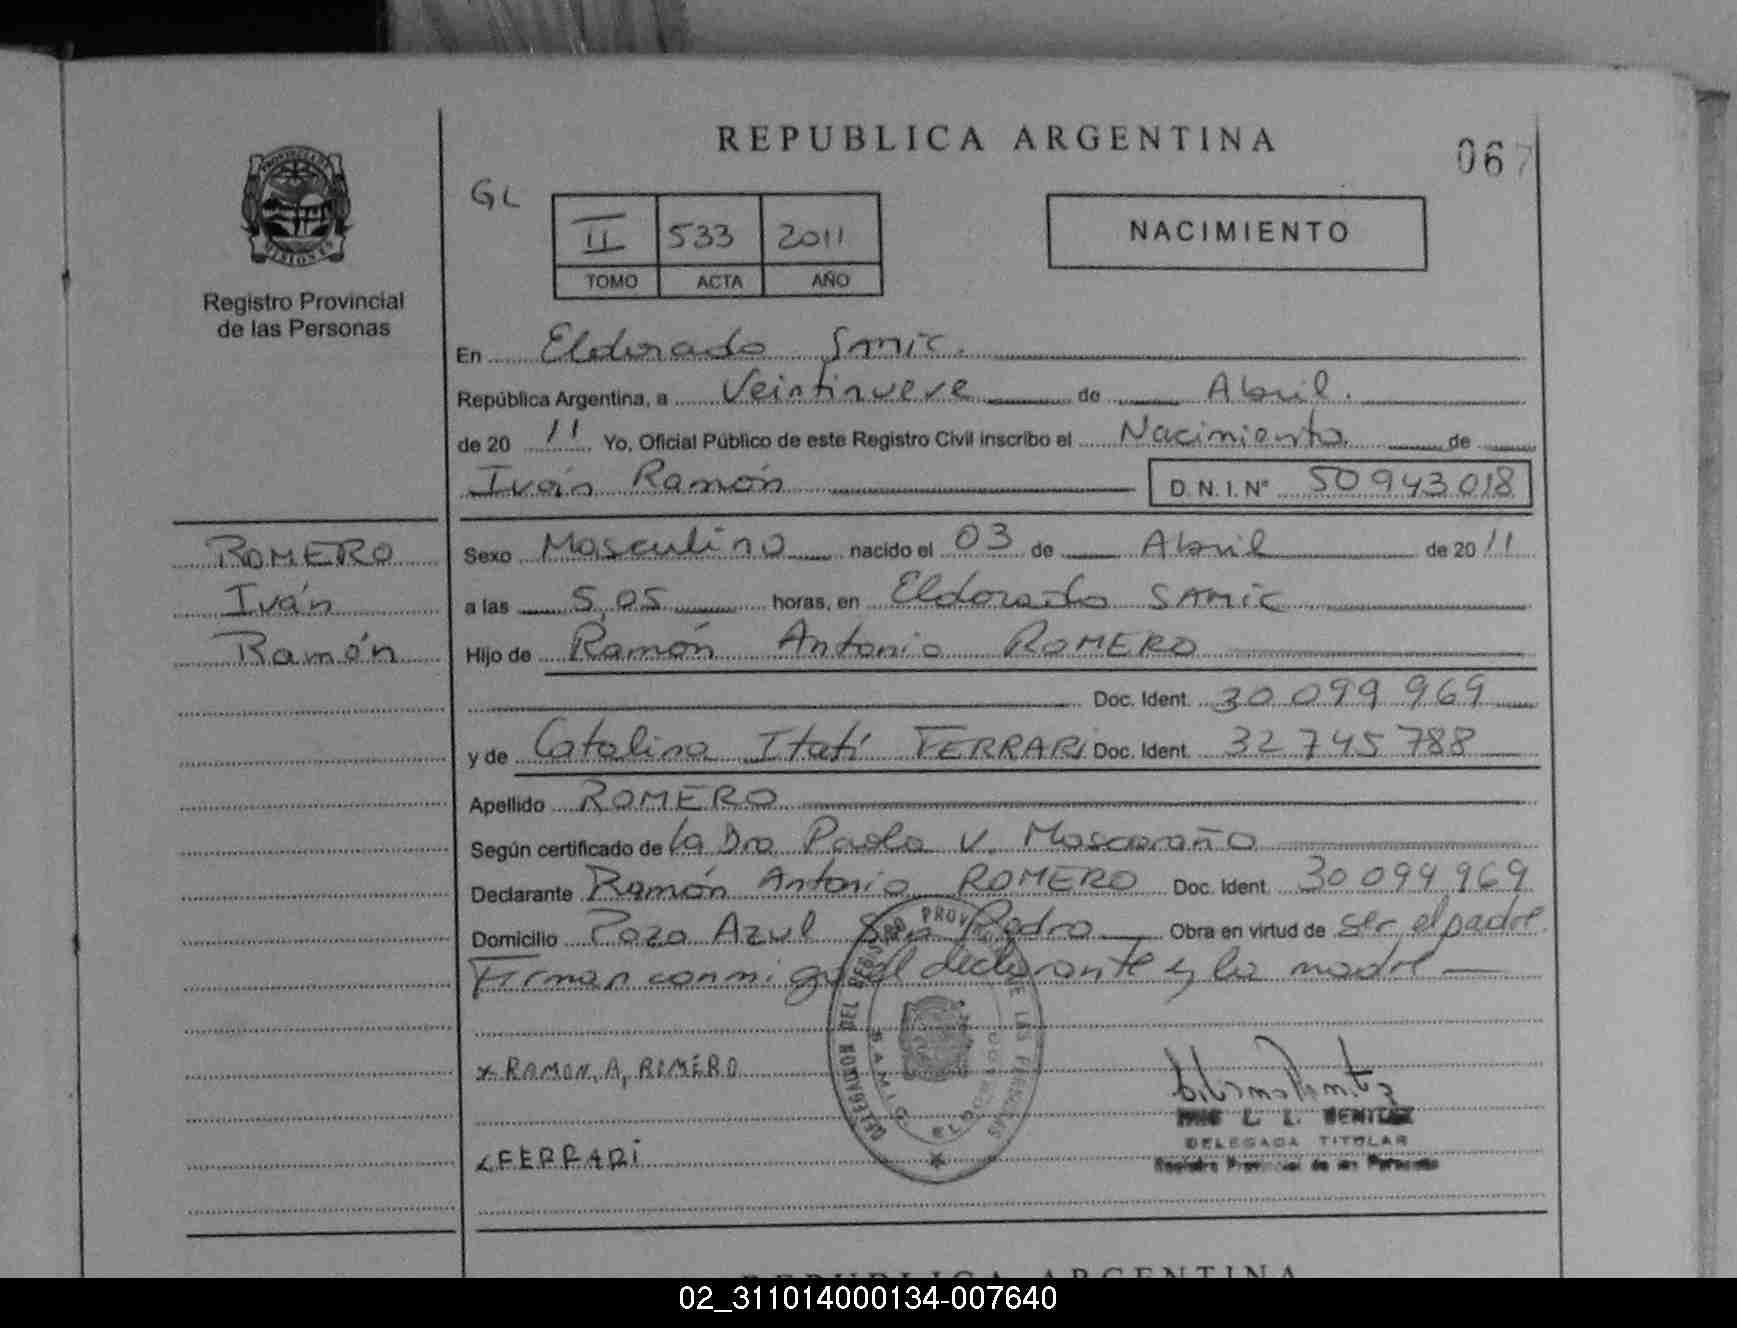 REPUBLICA ARGENTINA
067
PROVINCIA DE MISIONES
Registro Provincial
de las Personas
GL
II 533 2011
TOMO ACTA AÑO
NACIMIENTO
En Eldorado Samic.
República Argentina, a Veintinueve de Abril.
de 20 11 Yo, Oficial Público de este Registro Civil inscribo el Nacimiento de
Iván Ramón D.N.I.N° 50943018
ROMERO
Iván
Ramón
Sexo Masculino nacido el 03 de Abril de 20 11
a las 5,05 horas, en Eldorado SAMIC
Hijo de Ramón Antonio ROMERO
Doc. Ident. 30 099 969
y de Catalina Itatí FERRARI Doc. Ident. 32 745 788
Apellido ROMERO
Según certificado de la Dra Paola V. Moscaraño
Declarante Ramón Antonio ROMERO Doc. Ident. 30 099 969
Domicilio Pozo Azul San Pedro Obra en virtud de ser el padre.
Firman conmigo el declarante y la madre
x RAMON, A, ROMERO
x FERRARI
DELEGACION DEL REGISTRO PROVINCIAL DE LAS PERSONAS
SAMIC ELDORADO
L. L. BENITEZ
DELEGADA TITULAR
Registro Provincial de las Personas
REPUBLICA ARGENTINA
02_311014000134-007640